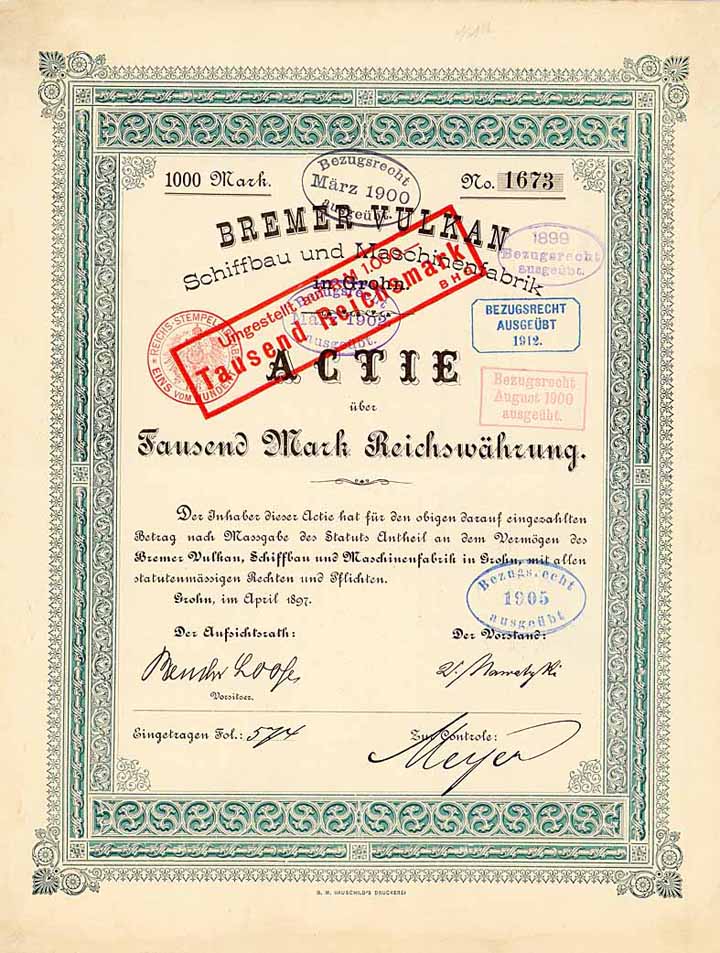 1000 Mark.
Bezugsrecht
März 1900
ausgeübt.
No. 1673
BREMER VULKAN
Schiffbau und Maschinenfabrik
in Grohn.
1899
Bezugsrecht
ausgeübt.
Umgestellt auf RM 1.000.—
Tausend Reichsmark
BHG
Bezugsrecht
März 1902.
ausgeübt.
BEZUGSRECHT
AUSGEÜBT
1912.
REICHS STEMPEL ABGABE
EINS VOM HUNDERT
ACTIE
Bezugsrecht
August 1900
ausgeübt.
über
Tausend Mark Reichswährung.
Der Inhaber dieser Actie hat für den obigen darauf eingezahlten
Betrag nach Massgabe des Statuts Antheil an dem Vermögen des
Bremer Vulkan, Schiffbau und Maschinenfabrik in Grohn, mit allen
statutenmässigen Rechten und Pflichten.
Grohn, im April 1897.
Bezugsrecht
1905
ausgeübt
Der Aufsichtsrath:
Der Vorstand:
Vorsitzer.
Eingetragen Fol.: 574
Zur Controle:
Meyer
G. M. HAUSCHILD'S DRUCKEREI